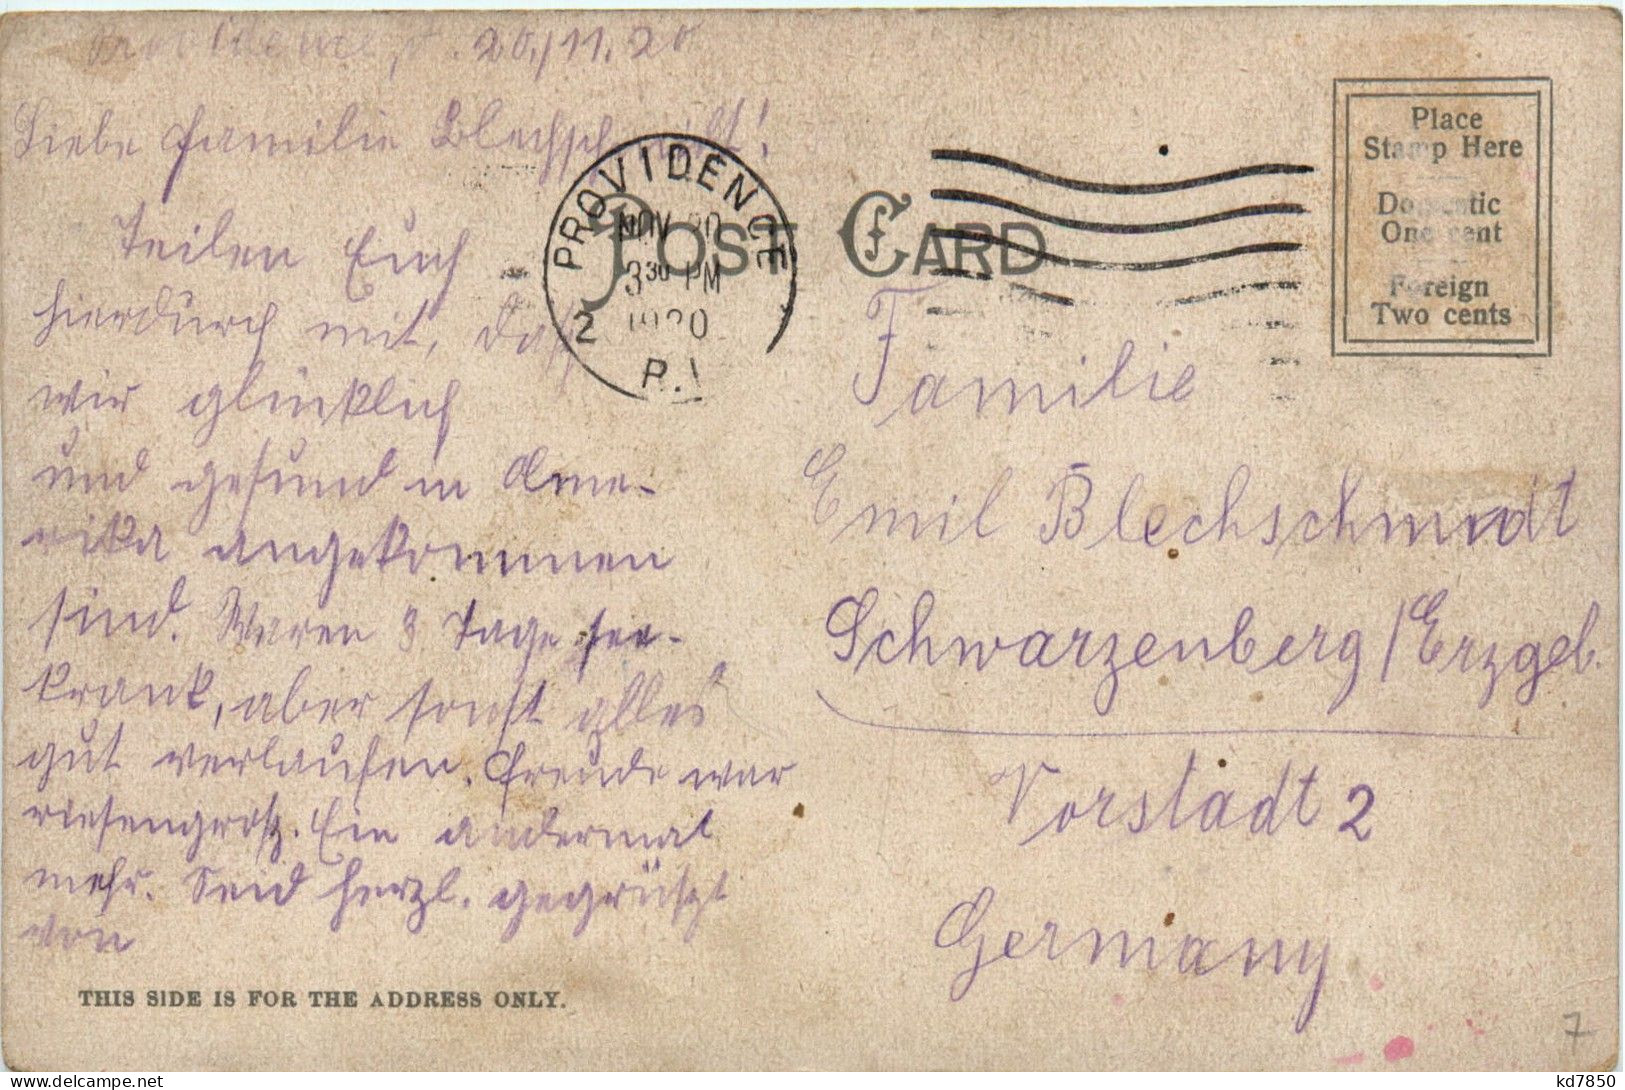 Providence, d. 20./11.20
Liebe Familie Blechschmidt!
Teilen Euch
hierdurch mit, daß
wir glücklich
und gesund in Ame-
rika angekommen
sind. Waren 3 Tage see-
krank, aber sonst alles
gut verlaufen. Freude war
riesengroß. Ein andermal
mehr. Seid herzl. gegrüßt
von
THIS SIDE IS FOR THE ADDRESS ONLY.
POST CARD
PROVIDENCE
NOV 20
3 30 PM
1920
2
R.I.
Place
Stamp Here
Domestic
One cent
Foreign
Two cents
Familie
Emil Blechschmidt
Schwarzenberg/Erzgeb.
Vorstadt 2
Germany
7
kd7850